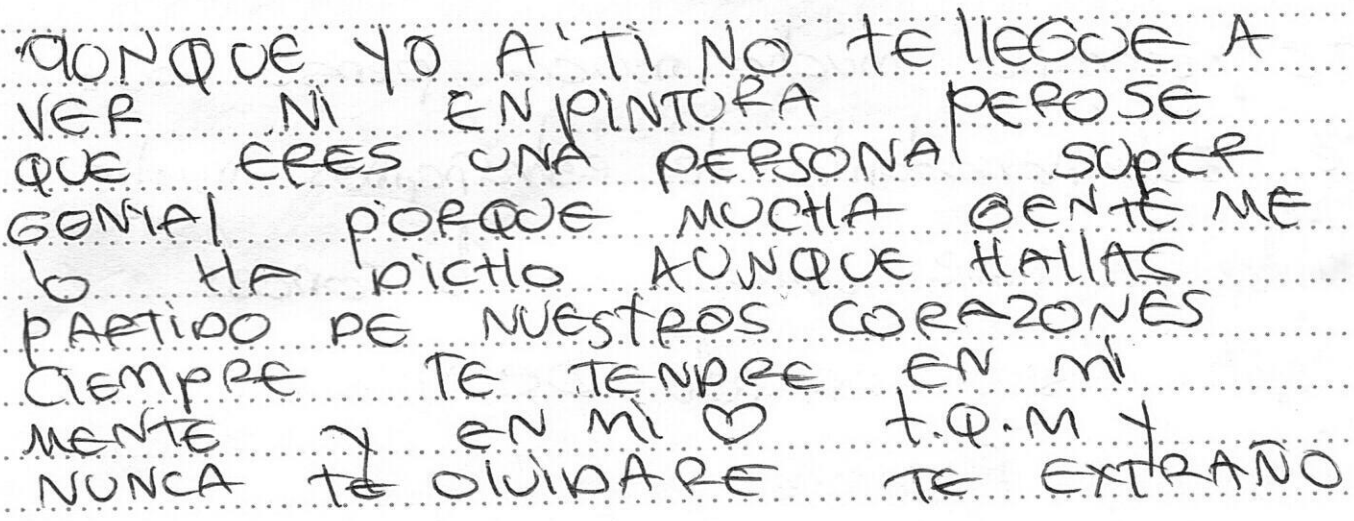 AUNQUE YO A TI NO tE llEGUE A
VER NI EN PINTURA PERO SE
QUE ERES UNA PERSONA SUPER
GENIAl PORQUE MUCHA GENTE ME
lo HA DICHO AUNQUE HAllAS
PARTIDO DE NUEStROS CORAZONES
CIEMPRE TE TENDRE EN MI
MENTE Y EN MI ♡ t.Q.M Y
NUNCA tE OlVIDARE TE EXTRAÑO